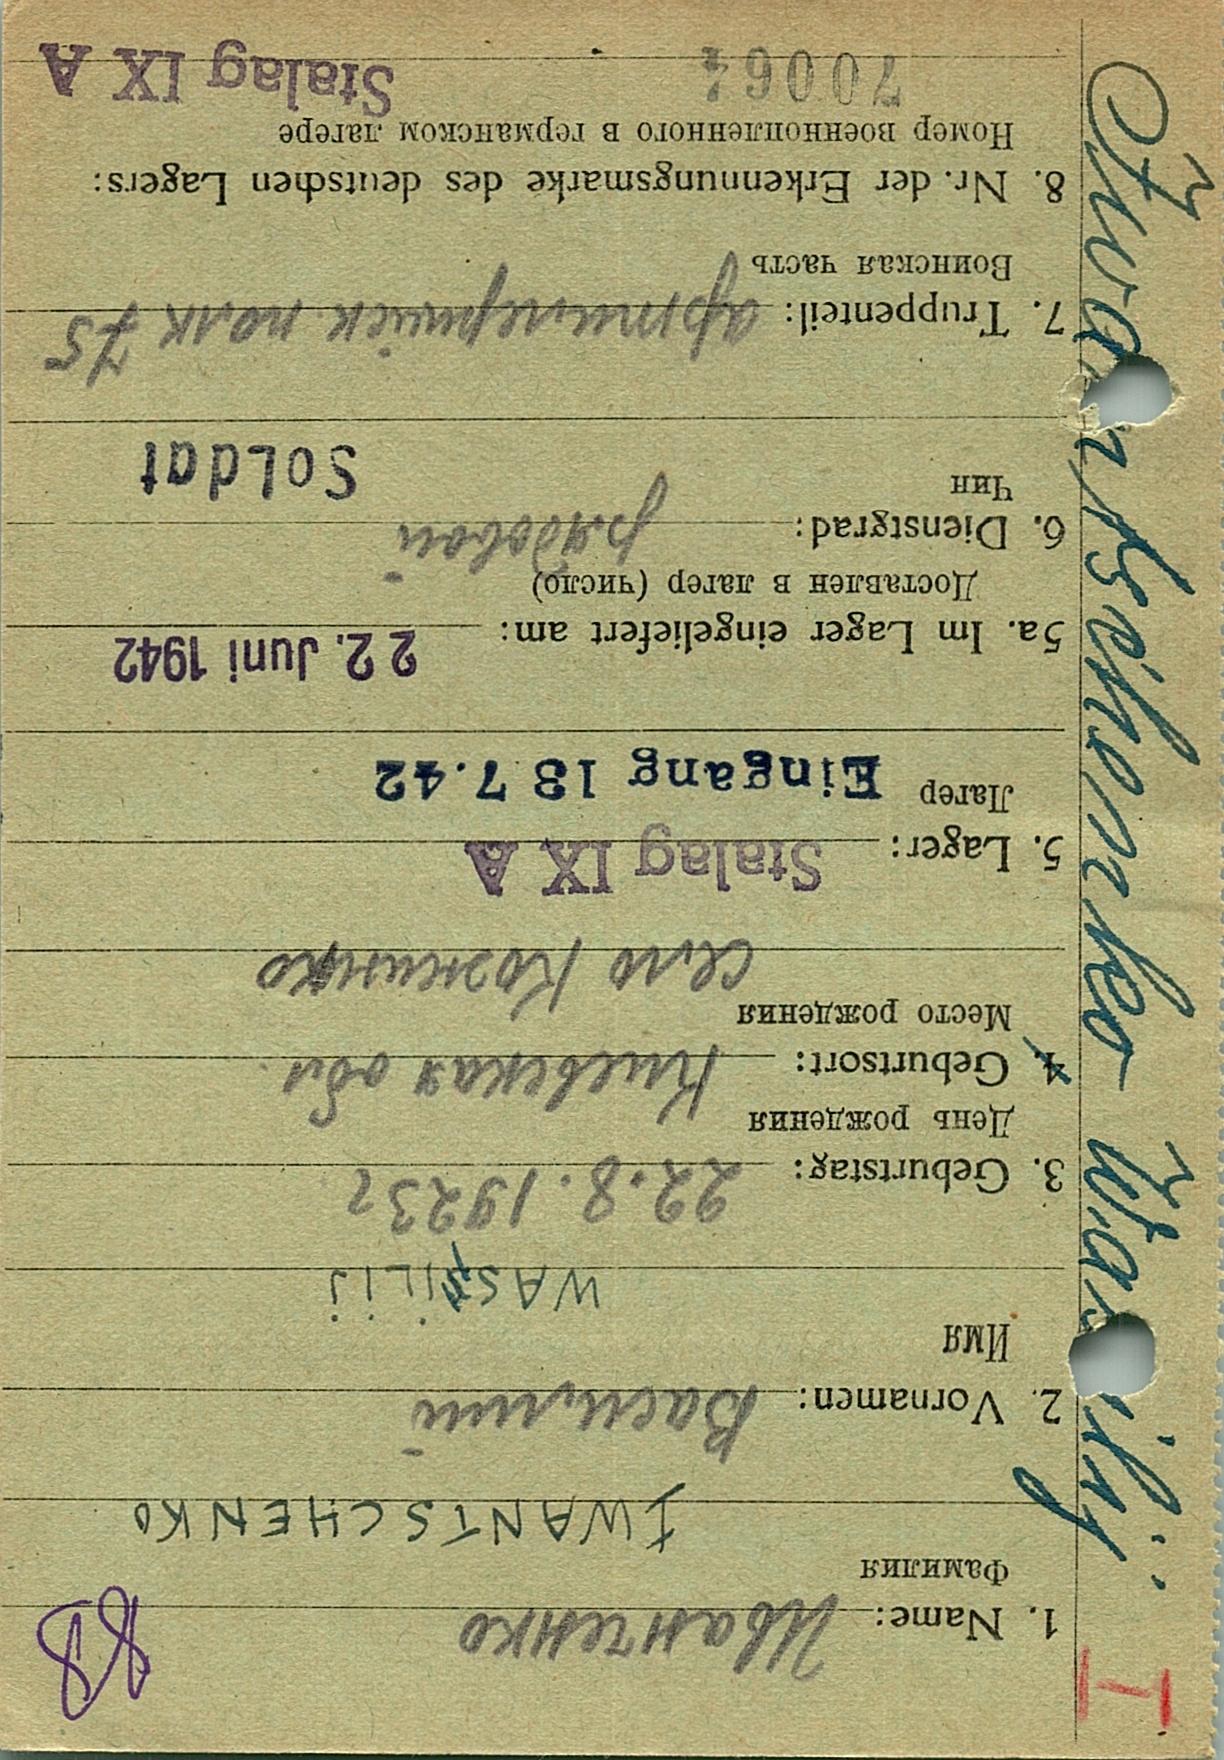 I
88
1. Name: Иванченко
Фамилия
IWANTSCHENKO
2. Vornamen: Василий
Имя
WASSILIJ
3. Geburtstag: 22.8.1923г
День рождения
4. Geburtsort: Киевская обл.
Место рождения
село
5. Lager: Stalag IX A
Лагер Eingang 13 7.42
5a. Im Lager eingeliefert am: 22. Juni 1942
Доставлен в лагер (число)
6. Dienstgrad: рядовой
Чин
Soldat
7. Truppenteil: полк 75
Воинская часть
8. Nr. der Erkennungsmarke des deutschen Lagers:
Номер военнопленного в германском лагере
70064 Stalag IX A
Iwantschenko